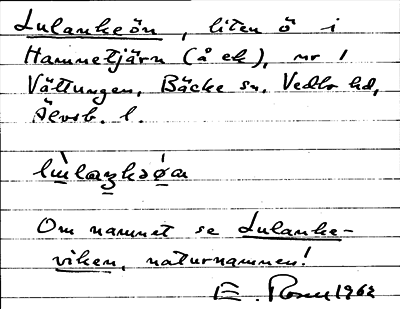 Lulankeön, liten ö i
Hamnetjärn (å ek), nr 1
Vättungen, Bäcke sn. Vedbo hd,
Älvsb. l.
Om namnet se Lulanke-
viken, naturnamnen!
E. Rosen 1962